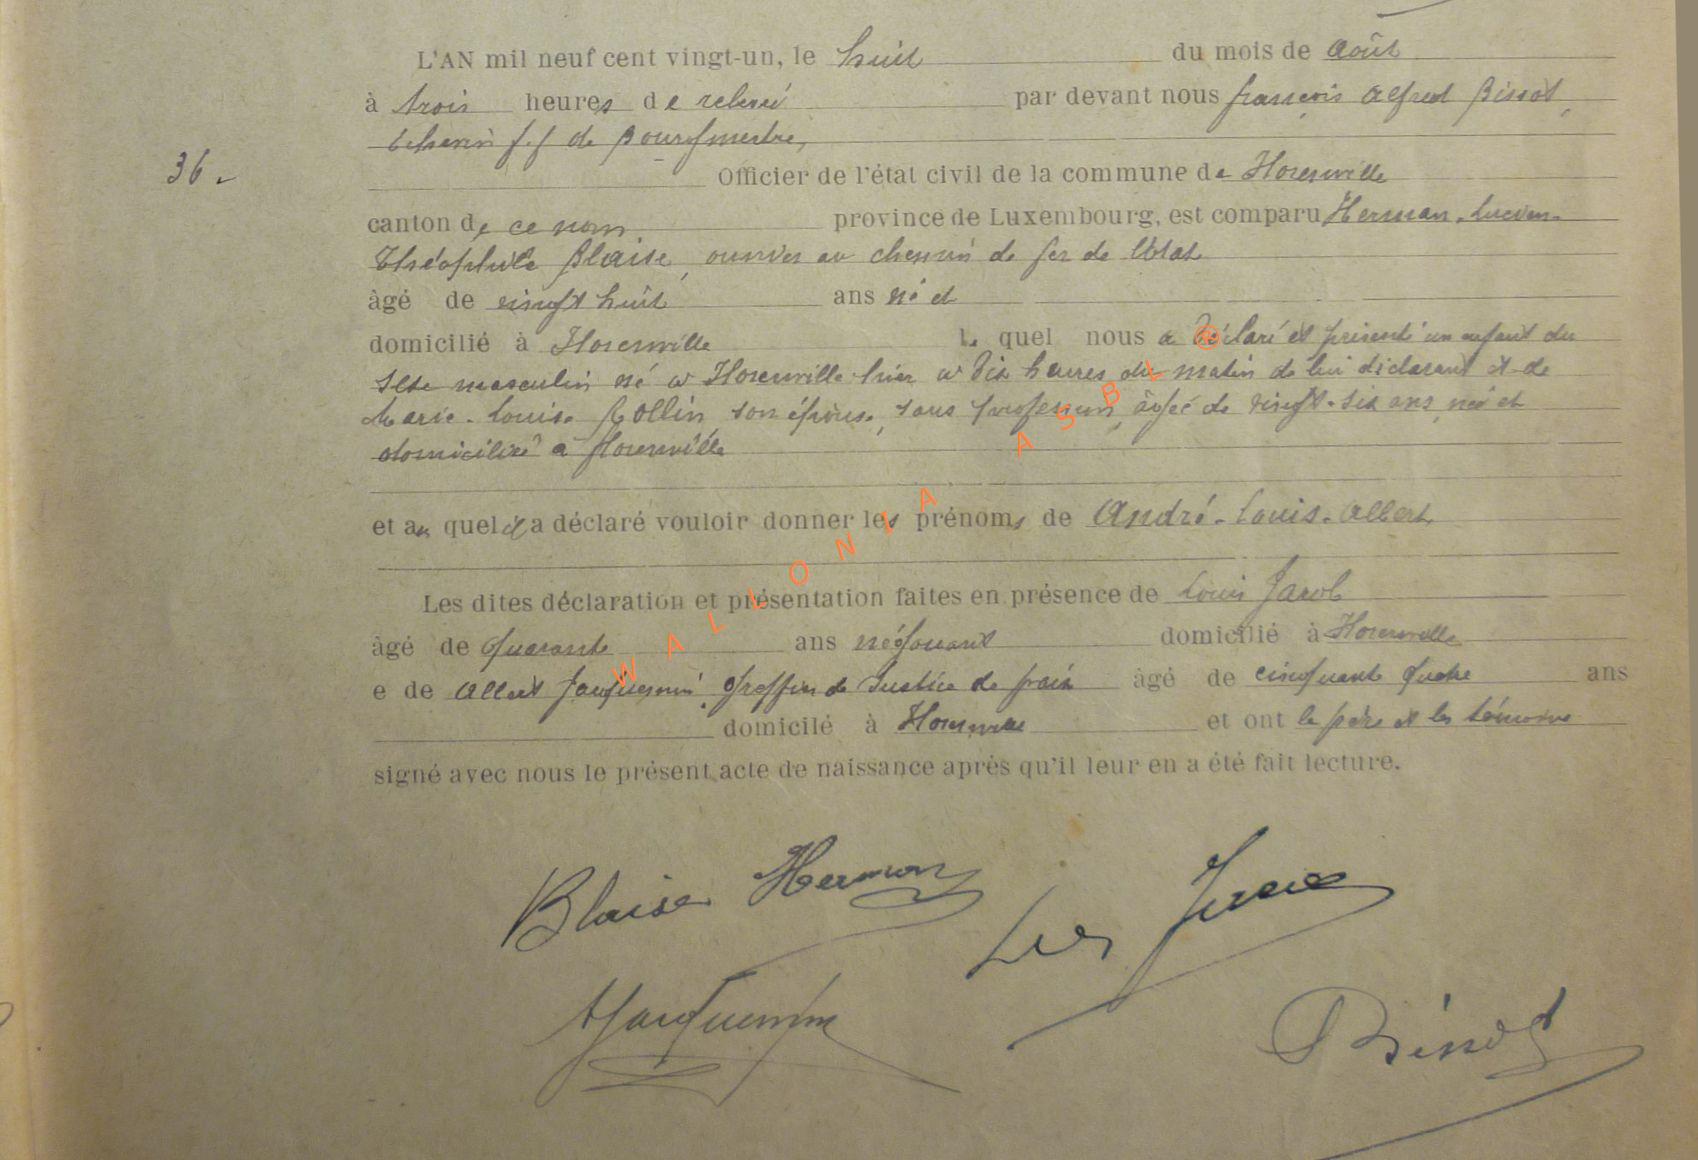 L'AN mil neuf cent vingt-un, le huit du mois de août
à trois heures de relevé par devant nous françois Alfred Bissot,
Echevin f.f de Bourgmestre,
36.
Officier de l'état civil de la commune de Florenville
canton de ce nom province de Luxembourg, est comparu Herman Lucien
Théophile Blaise, ouvrier au chemin de fer de l'Etat
âgé de vingt huit ans né et
domicilié à Florenville le quel nous a déclaré et présenté un enfant du
sexe masculin né à Florenville hier à dix heures du matin de lui déclarant et de
Marie-Louise Rollin, son épouse, sans profession, âgée de vingt-six ans, née et
domiciliée à Florenville
et au quel il a déclaré vouloir donner les prénoms de André-Louis-Albert
Les dites déclaration et présentation faites en présence de Louis Jacob
âgé de quarante ans négociant domicilié à Florenville
e de Albert Jacquemin greffier de Justice de paix âgé de cinquante quatre ans
domicilé à Florenville et ont le père et les témoins
signé avec nous le présent acte de naissance après qu'il leur en a été fait lecture.
Blaise Herman
Jacquemin
Bissot
WALLONIA ASBL ®